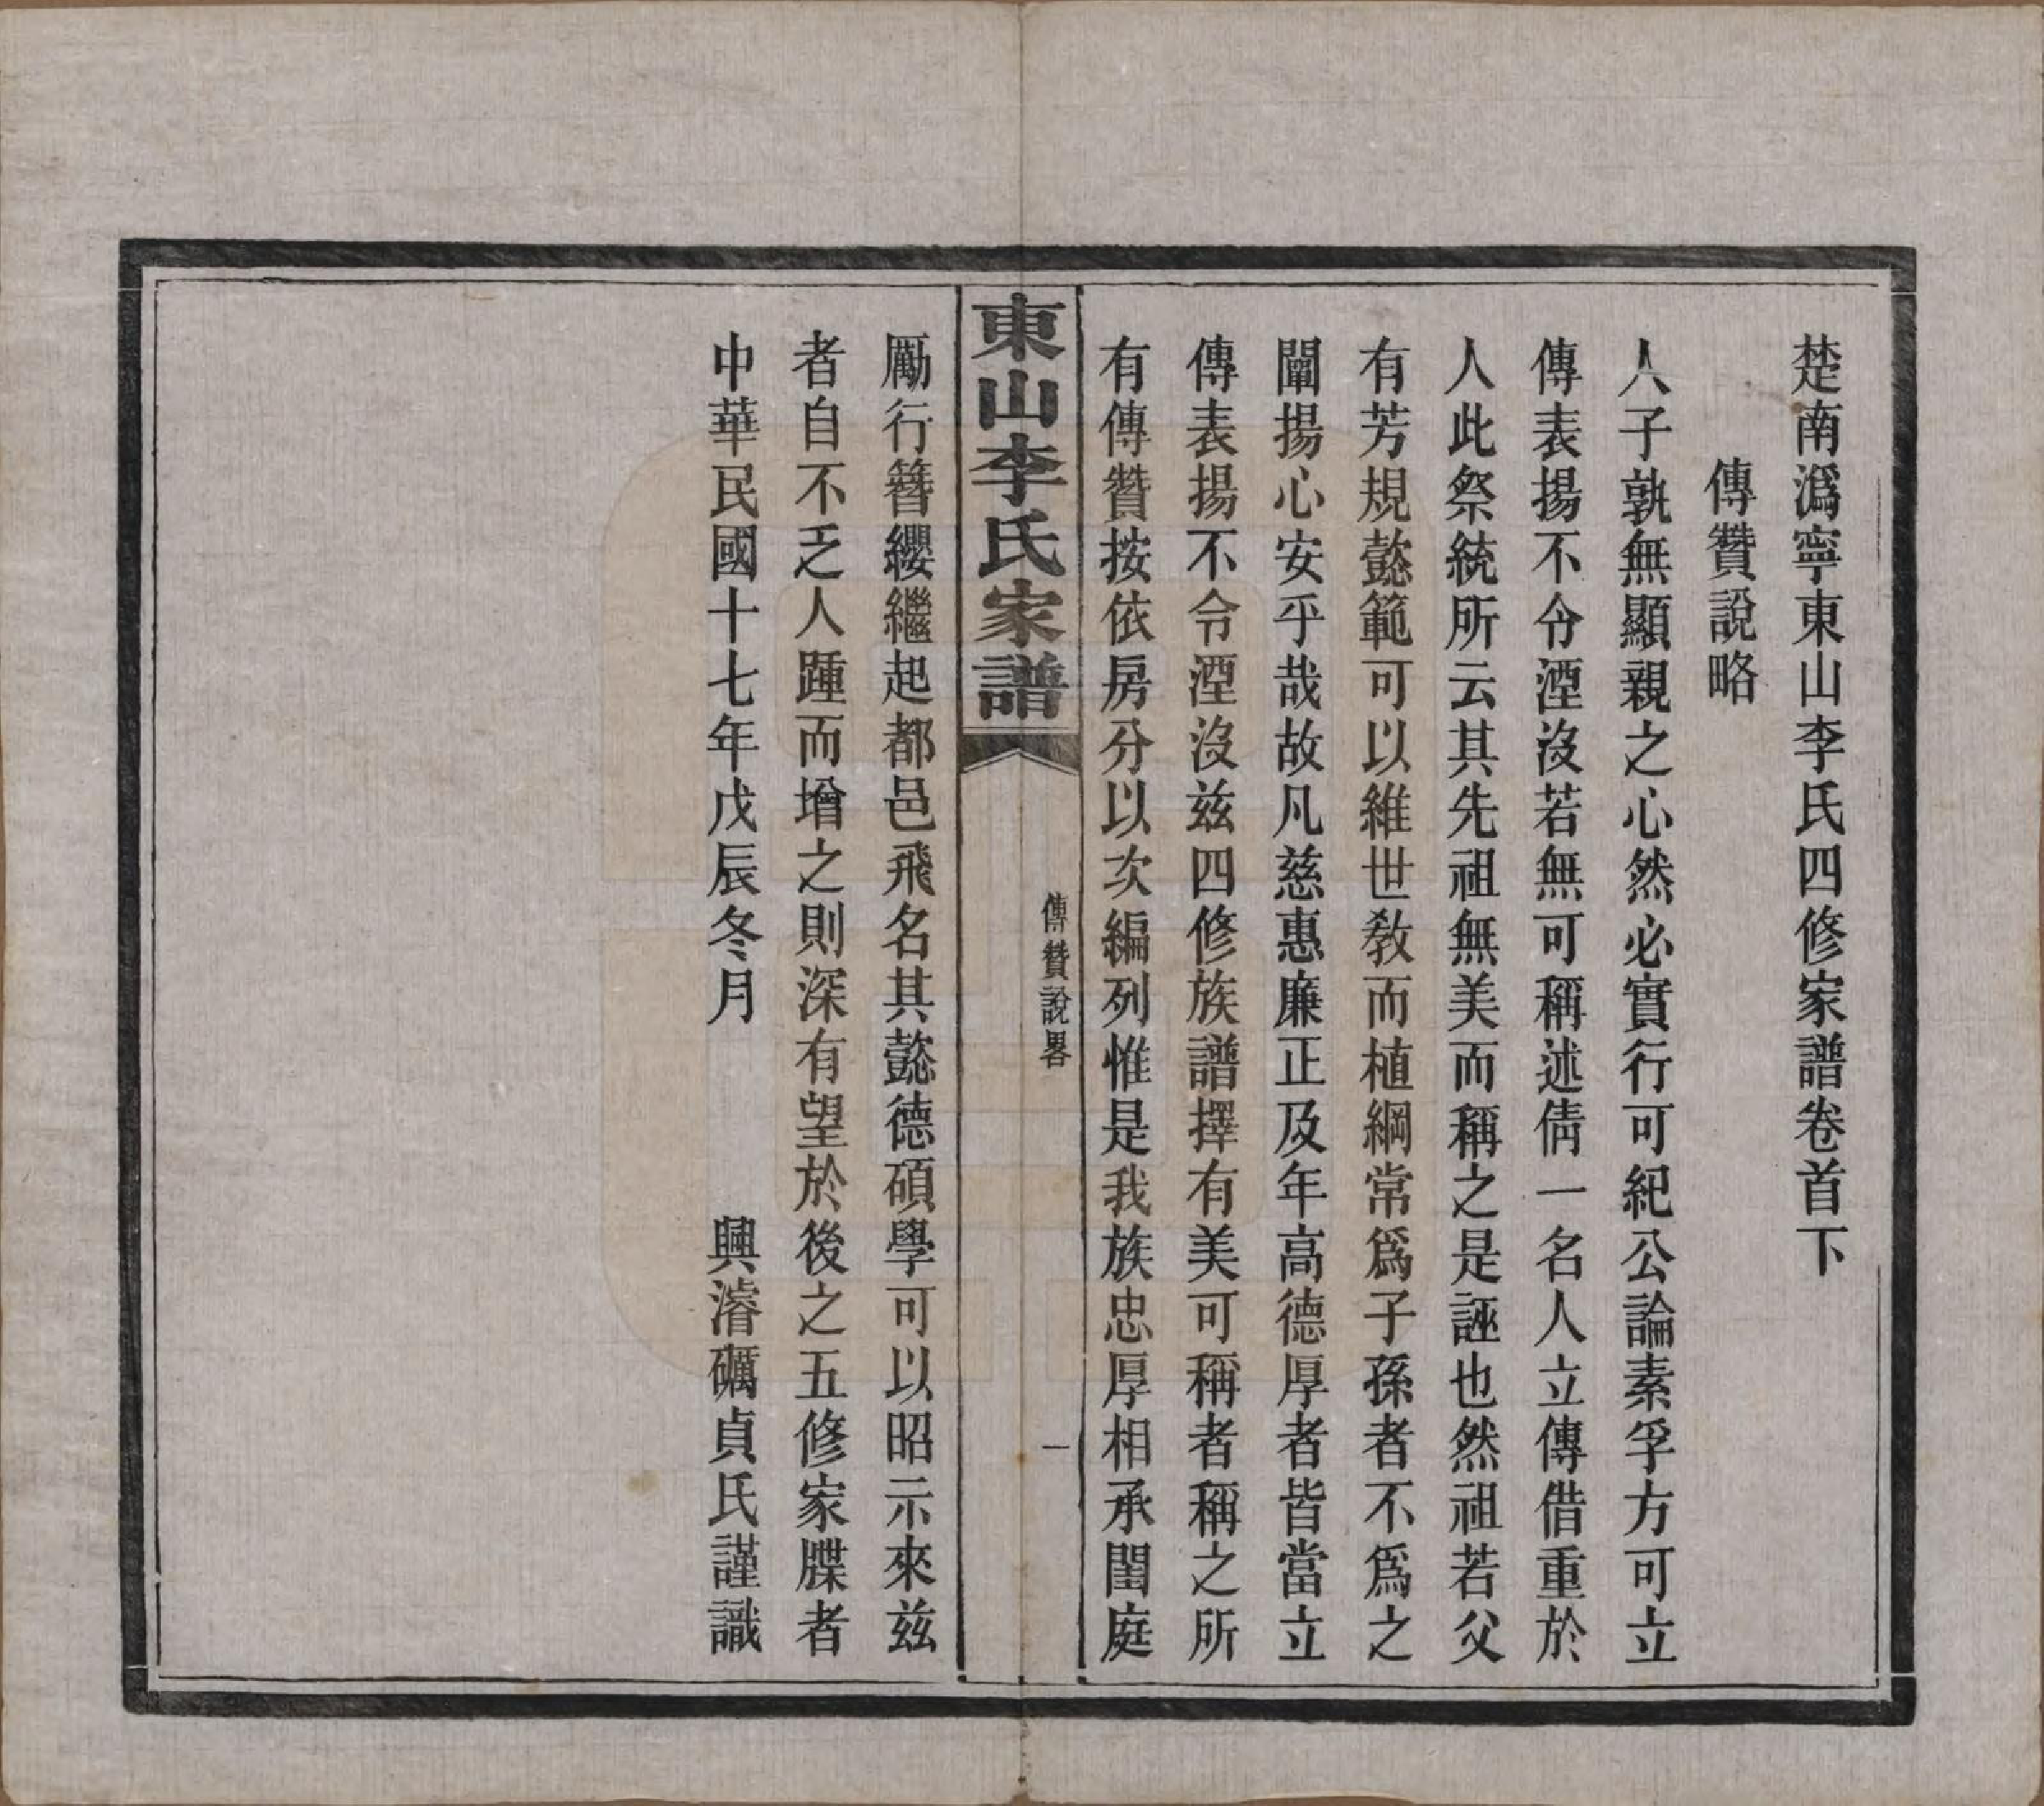 楚南溈寧東山李氏四修家譜卷首下
傳贊說略
人子孰無顯親之心然必實行可紀公論素孚方可立
傳表揚不令湮沒若無可稱述倩一名人立傳借重於
人此祭統所云其先祖無美而稱之是誣也然祖若父
有芳規懿範可以維世教而植綱常爲子孫者不爲之
闡揚心安乎哉故凡慈惠廉正及年高德厚者皆當立
傳表揚不令湮沒茲四修族譜擇有美可稱者稱之所
有傳贊按依房分以次編列惟是我族忠厚相承閨庭
東山李氏家譜
傳贊說畧
一
勵行簪纓繼起都邑飛名其懿德碩學可以昭示來茲
者自不乏人踵而增之則深有望於後之五修家牒者
中華民國十七年戊辰冬月 興濬礪貞氏謹識